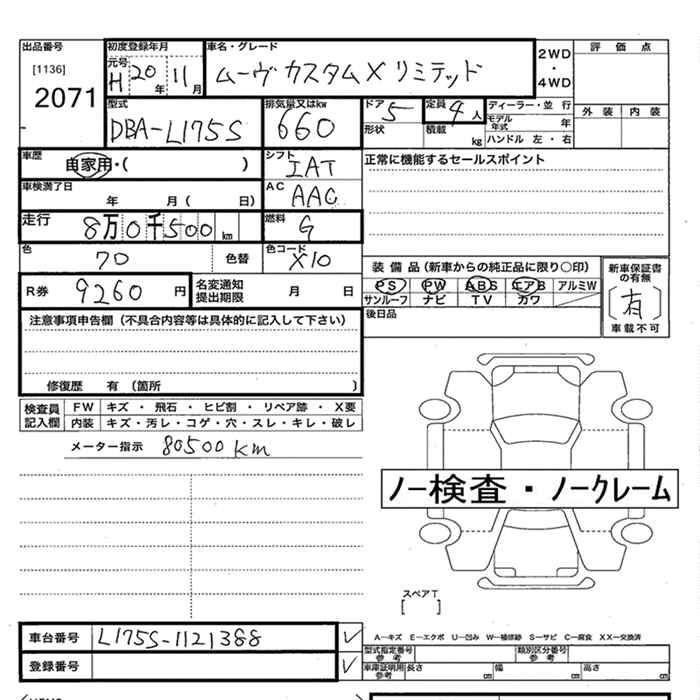 出品番号 初度登録年月 車名・グレード 2WD・4WD 評価点
[1136] 元号 H 20年 11月 ムーヴ カスタム X リミテッド
2071 型式 排気量又はkw ドア 5 定員 4人 ディーラー・並行 外装 内装
DBA-L175S 660 形状 積載 kg モデル年式 年
ハンドル 左・右
車歴 自家用・( ) シフト IAT 正常に機能するセールスポイント
車検満了日 年 月( 日) AC AAC
走行 8万0千500km 燃料 G
色 70 色替 色コード X10 装備品(新車からの純正品に限り○印) 新車保証書の有無
R券 9260円 名変通知提出期限 月 日 PS PW ABS エアB アルミW 〔有〕
サンルーフ ナビ TV カワ 車載不可
注意事項申告欄(不具合内容等は具体的に記入して下さい) 後日品
修復歴 有(箇所 )
検査員記入欄 FW キズ・飛石・ヒビ割・リペア跡・X要
内装 キズ・汚レ・コゲ・穴・スレ・キレ・破レ
メーター指示 80500km
ノー検査・ノークレーム
スペアT
[ ]
車台番号 L175S-1121388 ✓ A—キズ E—エクボ U—凹み W—補修跡 S—サビ C—腐食 XX—交換済
型式指定番号 参考 類別区分番号 参考
登録番号 ✓ 車庫証明用参考 長さ cm 幅 cm 高さ cm